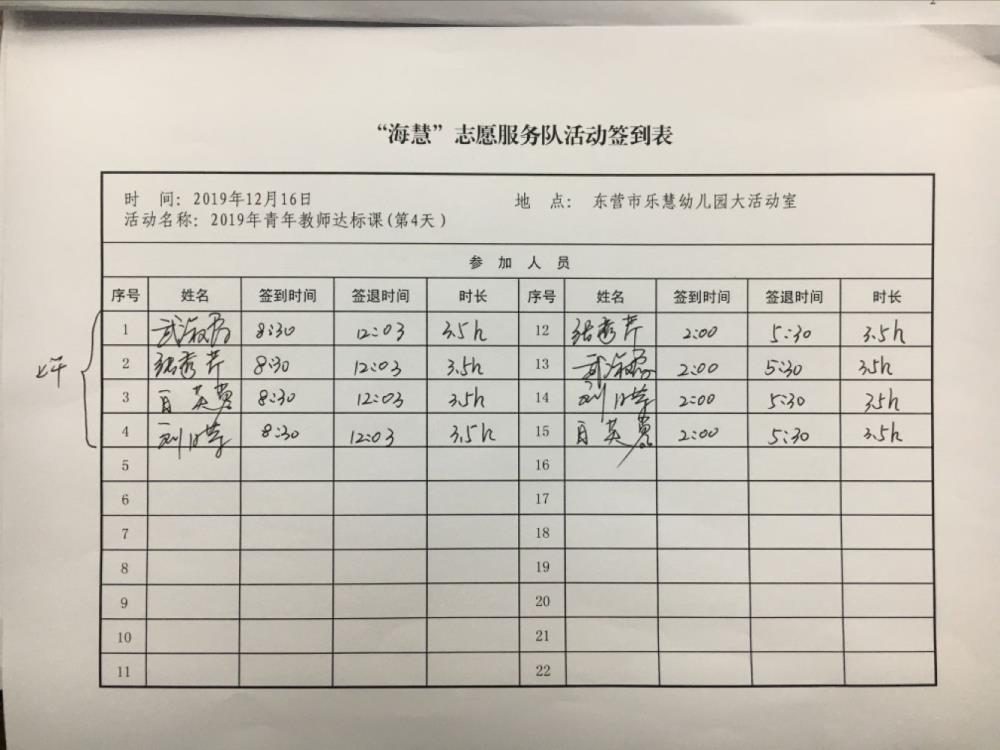 “海慧”志愿服务队活动签到表
时 间: 2019年12月16日 地 点: 东营市乐慧幼儿园大活动室
活动名称: 2019年青年教师达标课(第4天)
参加人员
序号 姓名 签到时间 签退时间 时长 序号 姓名 签到时间 签退时间 时长
1 8:30 12:03 3.5h 12 2:00 5:30 3.5h
上午
2 8:30 12:03 3.5h 13 2:00 5:30 3.5h
3 8:30 12:03 3.5h 14 2:00 5:30 3.5h
4 8:30 12:03 3.5h 15 2:00 5:30 3.5h
5 16
6 17
7 18
8 19
9 20
10 21
11 22